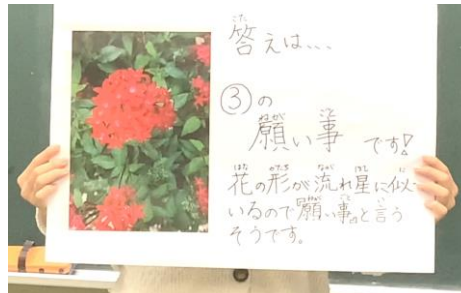 答えは、、、
③の
願い事 です!
花の形が流れ星に似て
いるので願い事のと言う
そうです。